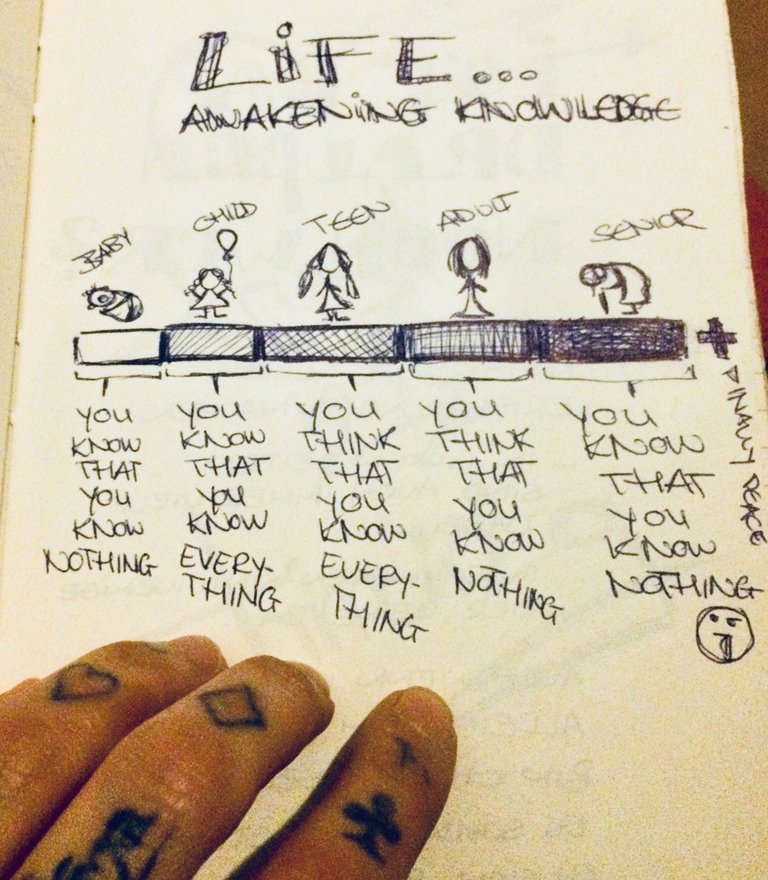 LiFE...
AWAKENiNG KNOWLEDGE
BABY
CHILD
TEEN
ADULT
SENIOR
YOU
KNOW
THAT
YOU
KNOW
NOTHING
YOU
KNOW
THAT
YOU
KNOW
EVERY-
THING
YOU
THINK
THAT
YOU
KNOW
EVERY-
THING
YOU
THINK
THAT
YOU
KNOW
NOTHING
YOU
KNOW
THAT
YOU
KNOW
NOTHING
FINALLY PEACE